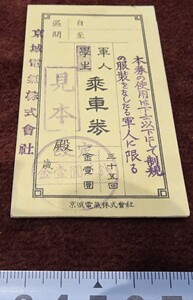 本券の使用は下士以下にして制規
の服装をなしたる軍人に限る
軍人
學生
乘車券
三十五回
金壹圓
見本
殿
自
至
區間
京城電氣株式會社
京城電氣株式會社